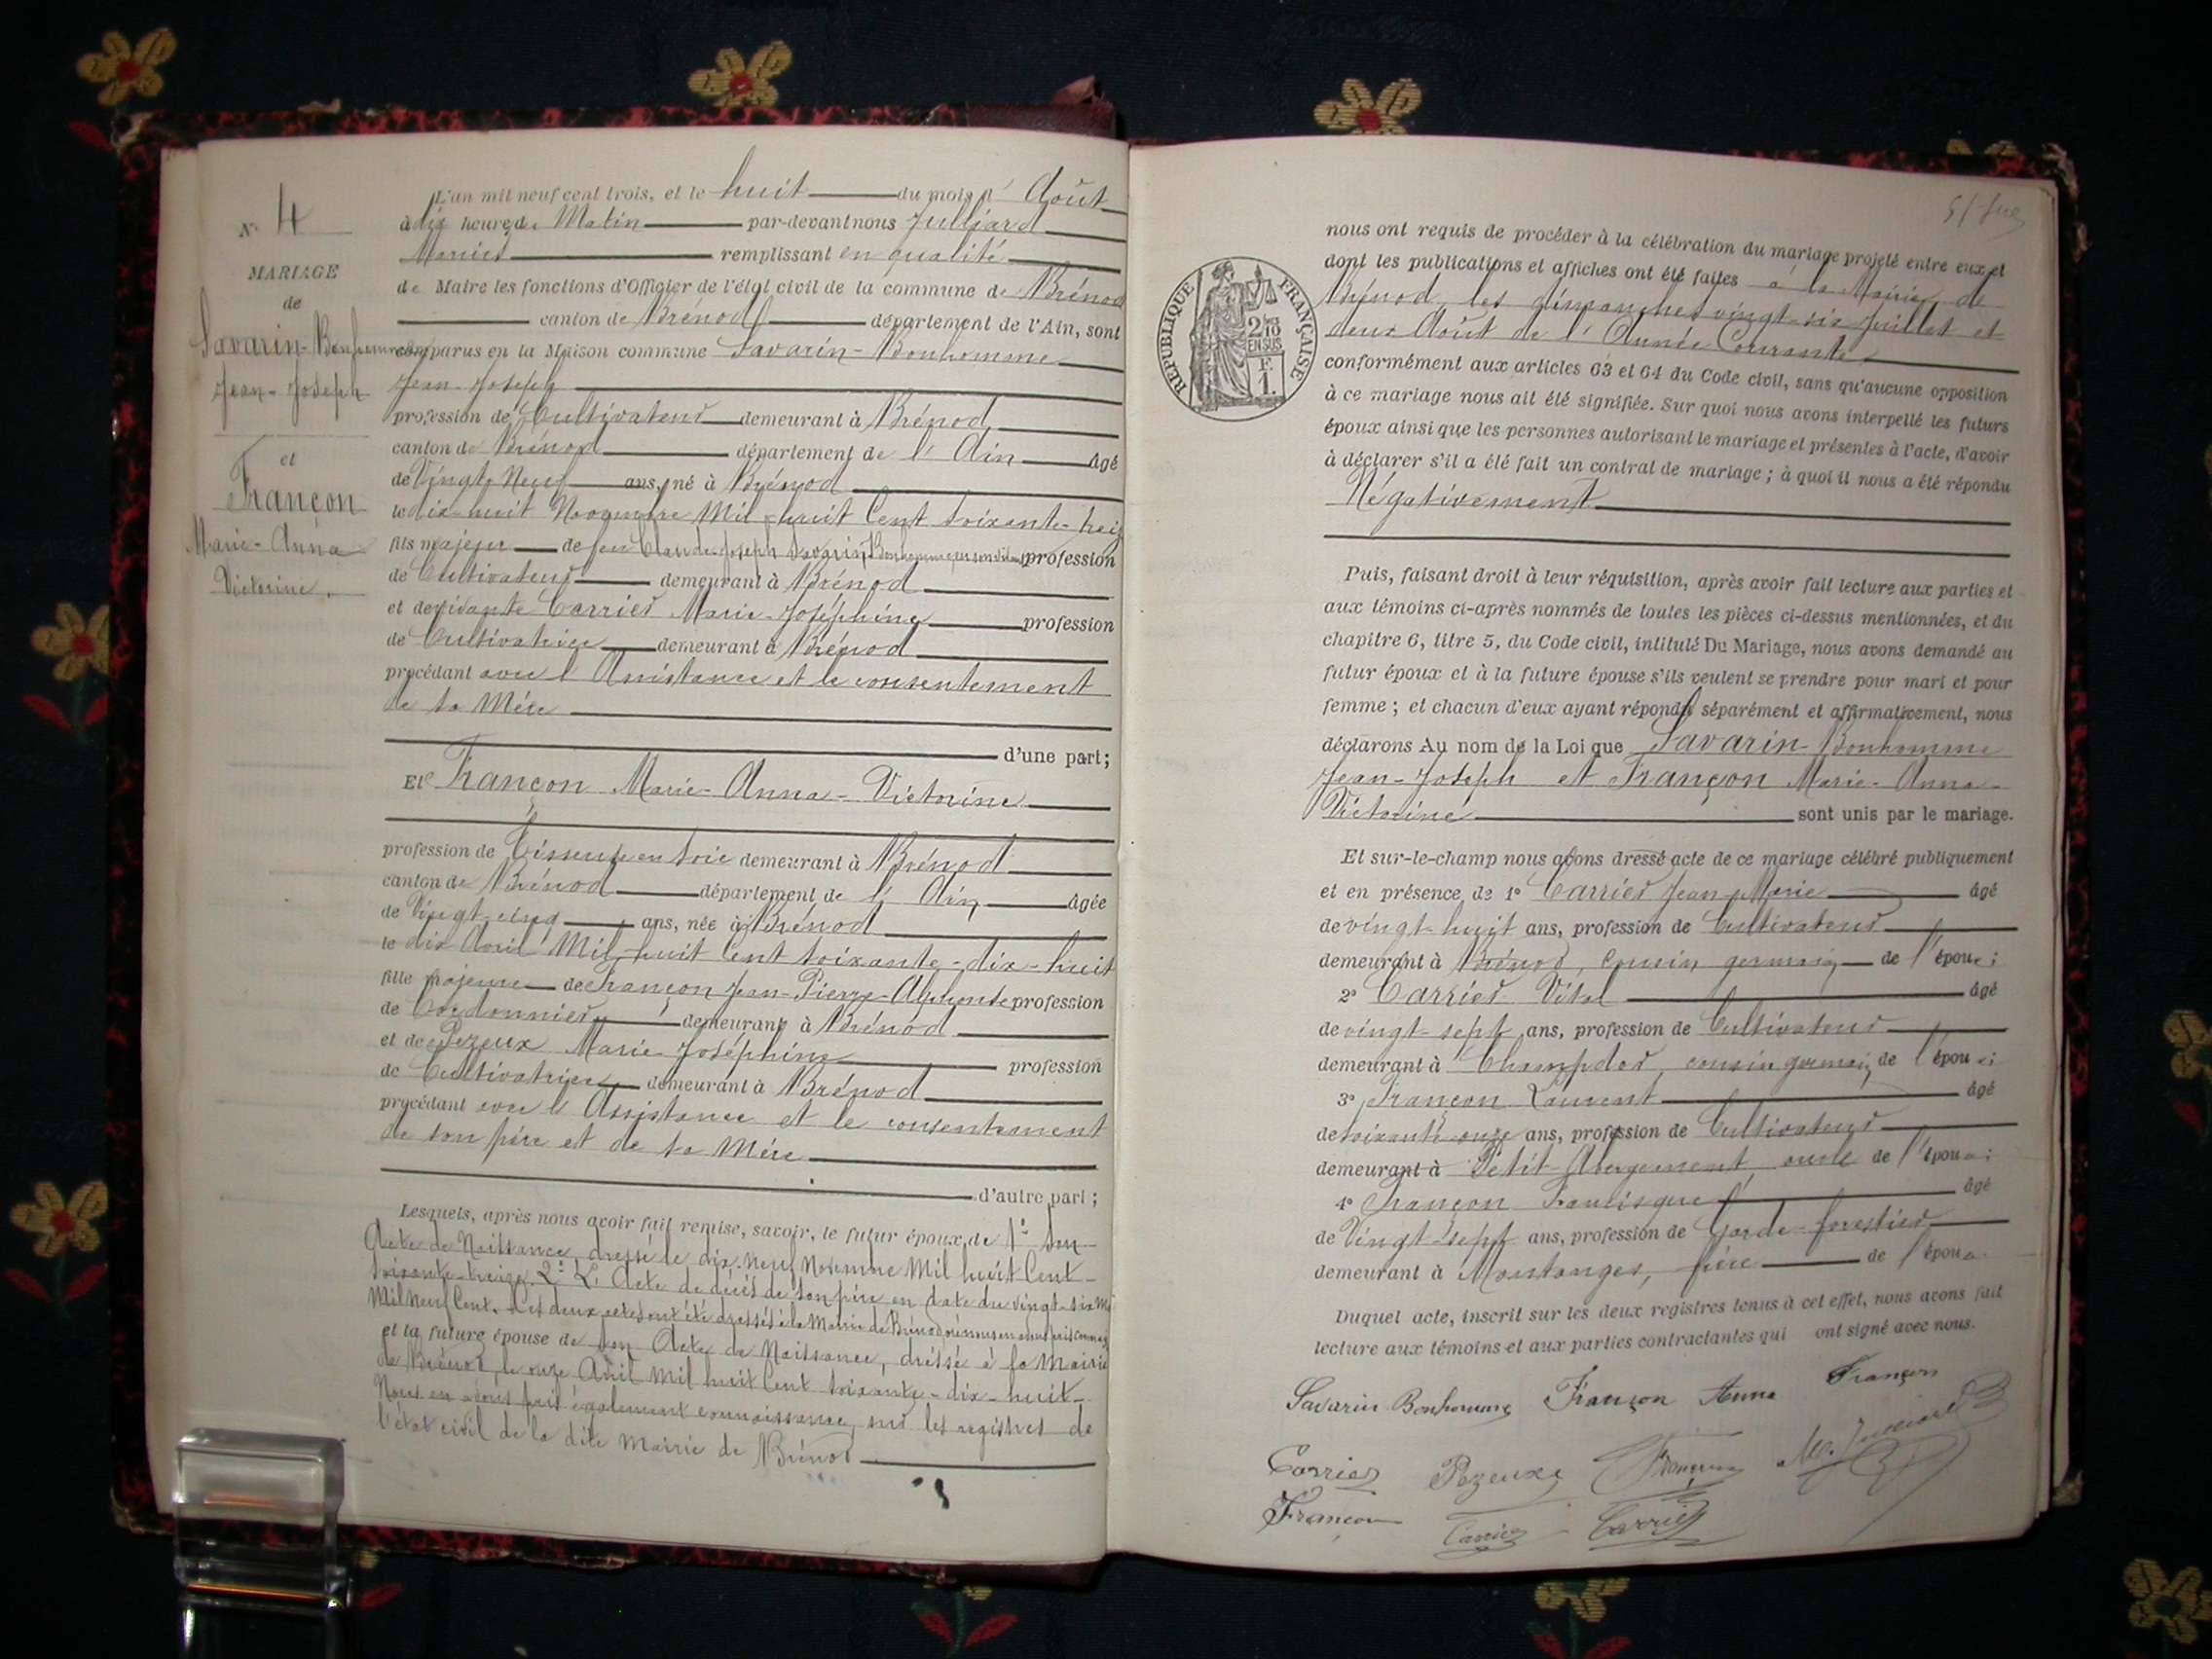 N° 4
MARIAGE
de
Savarin-Bonhomme
Jean-Joseph
et
Françon
Marie-Anna
Victorine
L'an mil neuf cent trois, et le huit du mois d' Août
à dix heures du Matin par-devant nous Julliard
Marius remplissant en qualité
de Maire les fonctions d'Officier de l'état civil de la commune de Brénod
canton de Brénod département de l'Ain, sont
comparus en la Maison commune Savarin-Bonhomme
Jean-Joseph
profession de Cultivateur demeurant à Brénod
canton de Brénod département de l' Ain âgé
de Vingt-Neuf ans, né à Brénod
le dix-huit Novembre Mil huit Cent soixante-treize
fils majeur de feu Claude-Joseph Savarin-Bonhomme en son vivant profession
de Cultivateur demeurant à Brénod
et de vivante Carrier Marie-Joséphine profession
de Cultivatrice demeurant à Brénod
procédant avec l'Assistance et le consentement
de sa Mère
d'une part;
Et Françon Marie-Anna-Victorine
profession de Tisseuse en soie demeurant à Brénod
canton de Brénod département de l' Ain âgée
de Vingt-cinq ans, née à Brénod
le dix Avril Mil huit Cent soixante-dix-huit
fille majeure de Françon Jean-Pierre-Alphonse profession
de Cordonnier demeurant à Brénod
et de Pezeux Marie-Joséphine profession
de Cultivatrice demeurant à Brénod
procédant avec l'Assistance et le consentement
de son père et de sa Mère
d'autre part;
Lesquels, après nous avoir fait remise, savoir, le futur époux, de 1° Son
Acte de Naissance, dressé le dix-neuf Novembre Mil huit Cent
soixante-treize. 2° L'Acte de décès de son père en date du vingt-six Mai
Mil Neuf Cent. Les deux actes ont été dressés à la Mairie de Brénod où nous en avons pris
et la future épouse de son Acte de Naissance, dressé à la Mairie
de Brénod, le onze Avril Mil huit Cent soixante-dix-huit
Nous en avons fait également connaissance, sur les registres de
l'état civil de la dite Mairie de Brénod
nous ont requis de procéder à la célébration du mariage projeté entre eux et
dont les publications et affiches ont été faites à la Mairie de
Brénod, les dimanches vingt-six Juillet et
deux Août de l'Année Courante
conformément aux articles 63 et 64 du Code civil, sans qu'aucune opposition
à ce mariage nous ait été signifiée. Sur quoi nous avons interpellé les futurs
époux ainsi que les personnes autorisant le mariage et présentes à l'acte, d'avoir
à déclarer s'il a été fait un contrat de mariage; à quoi il nous a été répondu
Négativement
REPUBLIQUE FRANÇAISE
2/10 EN SUS
F. 1.
Puis, faisant droit à leur réquisition, après avoir fait lecture aux parties et
aux témoins ci-après nommés de toutes les pièces ci-dessus mentionnées, et du
chapitre 6, titre 5, du Code civil, intitulé Du Mariage, nous avons demandé au
futur époux et à la future épouse s'ils veulent se prendre pour mari et pour
femme; et chacun d'eux ayant répondu séparément et affirmativement, nous
déclarons Au nom de la Loi que Savarin-Bonhomme
Jean-Joseph et Françon Marie-Anna-
Victorine sont unis par le mariage.
Et sur-le-champ nous avons dressé acte de ce mariage célébré publiquement
et en présence de 1° Carrier Jean Marie âgé
de vingt-huit ans, profession de Cultivateur
demeurant à Brénod, cousin germain de l'époux;
2° Carrier Vital âgé
de vingt-sept ans, profession de Cultivateur
demeurant à Champdor, cousin germain de l'époux;
3° Françon Laurent âgé
de soixante-onze ans, profession de Cultivateur
demeurant à Petit-Abergement, oncle de l'épouse;
4° Françon Francisque âgé
de Vingt-sept ans, profession de Garde-forestier
demeurant à Montanges, frère de l'épouse
Duquel acte, inscrit sur les deux registres tenus à cet effet, nous avons fait
lecture aux témoins et aux parties contractantes qui ont signé avec nous.
Savarin Bonhomme Françon Anna Françon
Carrier Pezeux Françon M. Julliard
Françon Carrier Carrier